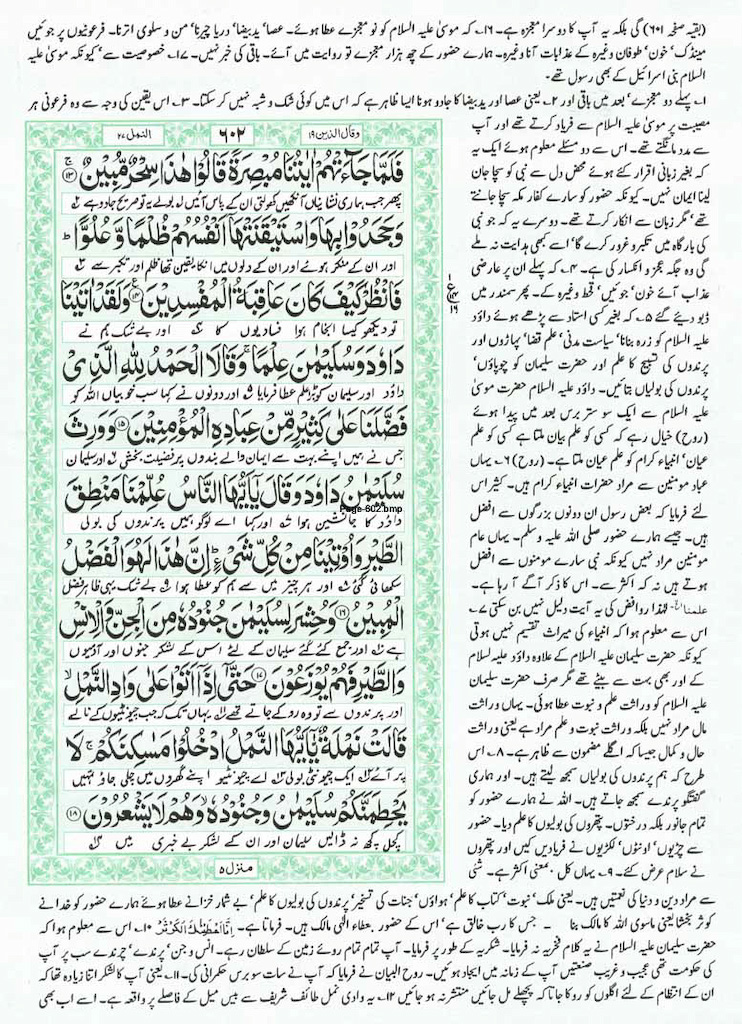 (بقیہ صفحہ ۶۰۱) گی بلکہ یہ آپ کا دوسرا معجزہ ہے۔ ۱۶۔ کہ موسیٰ علیہ السلام کو نو معجزے عطا ہوئے۔ عصا' یدبیضا' دریا چیرنا' من و سلویٰ اترنا۔ فرعونیوں پر جوئیں
مینڈک' خون' طوفان وغیرہ کے عذابات آنا وغیرہ۔ ہمارے حضور کے چھ ہزار معجزے تو روایت میں آئے۔ باقی کی خبر نہیں۔ ۱۷۔ خصوصیت سے' کیونکہ موسیٰ علیہ
السلام بنی اسرائیل کے بھی رسول تھے۔
۱۔ پہلے دو معجزے' بعد میں باقی اور ۲۔ یعنی عصا اور یدبیضا کا جادو ہونا ایسا ظاہر ہے کہ اس میں کوئی شک و شبہ نہیں کر سکتا۔ ۳۔ اس یقین کی وجہ سے وہ فرعونی ہر
وقال الذین ۱۹
۶۰۲
النمل ۲۷
فَلَمَّا جَآءَتْهُمْ اٰيٰتُنَا مُبْصِرَةً قَالُوْا هٰذَا سِحْرٌ مُّبِيْنٌ ۝۱۳
پھر جب ہماری نشانیاں آنکھیں کھولتی ان کے پاس آئیں بولے یہ تو صریح جادو ہے
وَجَحَدُوْا بِهَا وَاسْتَيْقَنَتْهَآ اَنْفُسُهُمْ ظُلْمًا وَّعُلُوًّا ؕ
اور ان کے منکر ہوئے اور ان کے دلوں میں انکا یقین تھا ظلم اور تکبر سے
فَانْظُرْ كَيْفَ كَانَ عَاقِبَةُ الْمُفْسِدِيْنَ ۝۱۴ وَلَقَدْ اٰتَيْنَا
تو دیکھو کیسا انجام ہوا فسادیوں کا اور بے شک ہم نے
دَاوٗدَ وَسُلَيْمٰنَ عِلْمًا ۚ وَقَالَا الْحَمْدُ لِلّٰهِ الَّذِيْ
داؤد اور سلیمان کو بڑا علم عطا فرمایا اور دونوں نے کہا سب خوبیاں اللہ کو
فَضَّلَنَا عَلٰى كَثِيْرٍ مِّنْ عِبَادِهِ الْمُؤْمِنِيْنَ ۝۱۵ وَوَرِثَ
جس نے ہمیں اپنے بہت سے ایمان والے بندوں پر فضیلت بخشی اور سلیمان
سُلَيْمٰنُ دَاوٗدَ وَقَالَ يٰٓاَيُّهَا النَّاسُ عُلِّمْنَا مَنْطِقَ
Page-602.bmp
داؤد کا جانشین ہوا اور کہا اے لوگو ہمیں پرندوں کی بولی
الطَّيْرِ وَاُوْتِيْنَا مِنْ كُلِّ شَيْءٍ ؕ اِنَّ هٰذَا لَهُوَ الْفَضْلُ
سکھائی گئی اور ہر چیز میں سے ہم کو عطا ہوا بے شک یہی ظاہر فضل
الْمُبِيْنُ ۝۱۶ وَحُشِرَ لِسُلَيْمٰنَ جُنُوْدُهٗ مِنَ الْجِنِّ وَالْاِنْسِ
ہے اور جمع کئے گئے سلیمان کے لئے اس کے لشکر جنوں اور آدمیوں
وَالطَّيْرِ فَهُمْ يُوْزَعُوْنَ ۝۱۷ حَتّٰٓى اِذَآ اَتَوْا عَلٰى وَادِ النَّمْلِ ۙ
اور پرندوں سے تو وہ روکے جاتے تھے یہاں تک کہ جب چیونٹیوں کے نالے
قَالَتْ نَمْلَةٌ يّٰٓاَيُّهَا النَّمْلُ ادْخُلُوْا مَسٰكِنَكُمْ ۚ لَا
پر آئے ایک چیونٹی بولی اے چیونٹیو اپنے گھروں میں چلی جاؤ تمہیں
يَحْطِمَنَّكُمْ سُلَيْمٰنُ وَجُنُوْدُهٗ ۙ وَهُمْ لَا يَشْعُرُوْنَ ۝۱۸
کچل نہ ڈالیں سلیمان اور ان کے لشکر بے خبری میں
منزل ۵
مصیبت پر موسیٰ علیہ السلام سے فریاد کرتے تھے اور آپ
سے مدد مانگتے تھے۔ اس سے دو مسئلے معلوم ہوئے ایک یہ
کہ بغیر زبانی اقرار کئے ہوئے محض دل سے نبی کو سچا جان
لینا ایمان نہیں۔ کیونکہ حضور کو سارے کفار مکہ سچا جانتے
تھے' مگر زبان سے انکار کرتے تھے۔ دوسرے یہ کہ جو نبی
کی بارگاہ میں تکبر و غرور کرے گا' اسے کبھی ہدایت نہ ملے
گی وہ جگہ عجز و انکسار کی ہے۔ ۴۔ کہ پہلے ان پر عارضی
عذاب آئے خون' جوئیں' قحط وغیرہ کے۔ پھر سمندر میں
ڈبو دیئے گئے ۵۔ کہ بغیر کسی استاد سے پڑھے ہوئے داؤد
علیہ السلام کو زرہ بنانا' سیاست مدنی' علم قضا' پہاڑوں اور
پرندوں کی تسبیح کا علم اور حضرت سلیمان کو چوپاؤں'
پرندوں کی بولیاں بتائیں۔ داؤد علیہ السلام حضرت موسیٰ
علیہ السلام سے ایک سو ستر برس بعد میں پیدا ہوئے
(روح) خیال رہے کہ کسی کو علم بیان ملتا ہے کسی کو علم
عیان' انبیاء کرام کو علم عیان ملتا ہے۔ (روح) ۶۔ یہاں
عباد مومنین سے مراد حضرات انبیاء کرام ہیں۔ کثیر اس
لئے فرمایا کہ بعض رسول ان دونوں بزرگوں سے افضل
ہیں۔ جیسے ہمارے حضور صلی اللہ علیہ وسلم۔ یہاں عام
مومنین مراد نہیں کیونکہ نبی سارے مومنوں سے افضل
ہوتے ہیں نہ کہ اکثر سے۔ اس کا ذکر آگے آ رہا ہے۔
علمنا الخ لہٰذا روافض کی یہ آیت دلیل نہیں بن سکتی ۷۔
اس سے معلوم ہوا کہ انبیاء کی میراث تقسیم نہیں ہوتی
کیونکہ حضرت سلیمان علیہ السلام کے علاوہ داؤد علیہ السلام
کے اور بھی بہت سے بیٹے تھے مگر صرف حضرت سلیمان
علیہ السلام کو وراثت علم و نبوت عطا ہوئی۔ یہاں وراثت
مال مراد نہیں بلکہ وراثت نبوت و علم مراد ہے یعنی وراثت
حال و کمال جیسا کہ اگلے مضمون سے ظاہر ہے۔ ۸۔ اس
طرح کہ ہم پرندوں کی بولیاں سمجھ لیتے ہیں۔ اور ہماری
گفتگو پرندے سمجھ جاتے ہیں۔ اللہ نے ہمارے حضور کو
تمام جانور بلکہ درختوں۔ پتھروں کی بولیوں کا علم دیا۔ حضور
سے چڑیوں' اونٹوں' لکڑیوں نے فریادیں کیں اور پتھروں
نے سلام عرض کئے۔ ۹۔ یہاں کل' بمعنی اکثر ہے۔ شئی
سے مراد دین و دنیا کی نعمتیں ہیں۔ یعنی ملک' نبوت' کتاب کا علم' ہواؤں' جنات کی تسخیر' پرندوں کی بولیوں کا علم' بے شمار خزانے عطا ہوئے ہمارے حضور کو خدا نے
کوثر بخشا یعنی ماسوی اللہ کا مالک بنا جس کا رب خالق ہے' اس کے حضور بعطاء الٰہی مالک ہیں۔ فرماتا ہے۔ اِنَّا اَعْطَيْنٰكَ الْكَوْثَرَ ۱۰۔ اس سے معلوم ہوا کہ
حضرت سلیمان علیہ السلام نے یہ کلام فخریہ نہ فرمایا۔ شکریہ کے طور پر فرمایا۔ آپ تمام تمام روئے زمین کے سلطان رہے۔ انس و جن' پرندے' چرندے سب پر آپ
کی حکومت تھی عجیب و غریب صنعتیں آپ کے زمانہ میں ایجاد ہوئیں۔ روح البیان نے فرمایا کہ آپ نے سات سو برس حکمرانی کی۔ ۱۱۔ یعنی آپ کا لشکر اتنا زیادہ تھا کہ
ان کے انتظام کے لئے اگلوں کو روکا جاتا کہ پچھلے مل جائیں منتشر نہ ہو جائیں ۱۲۔ یہ وادی نمل طائف شریف سے بیس میل کے فاصلے پر واقعہ ہے۔ اسے اب بھی